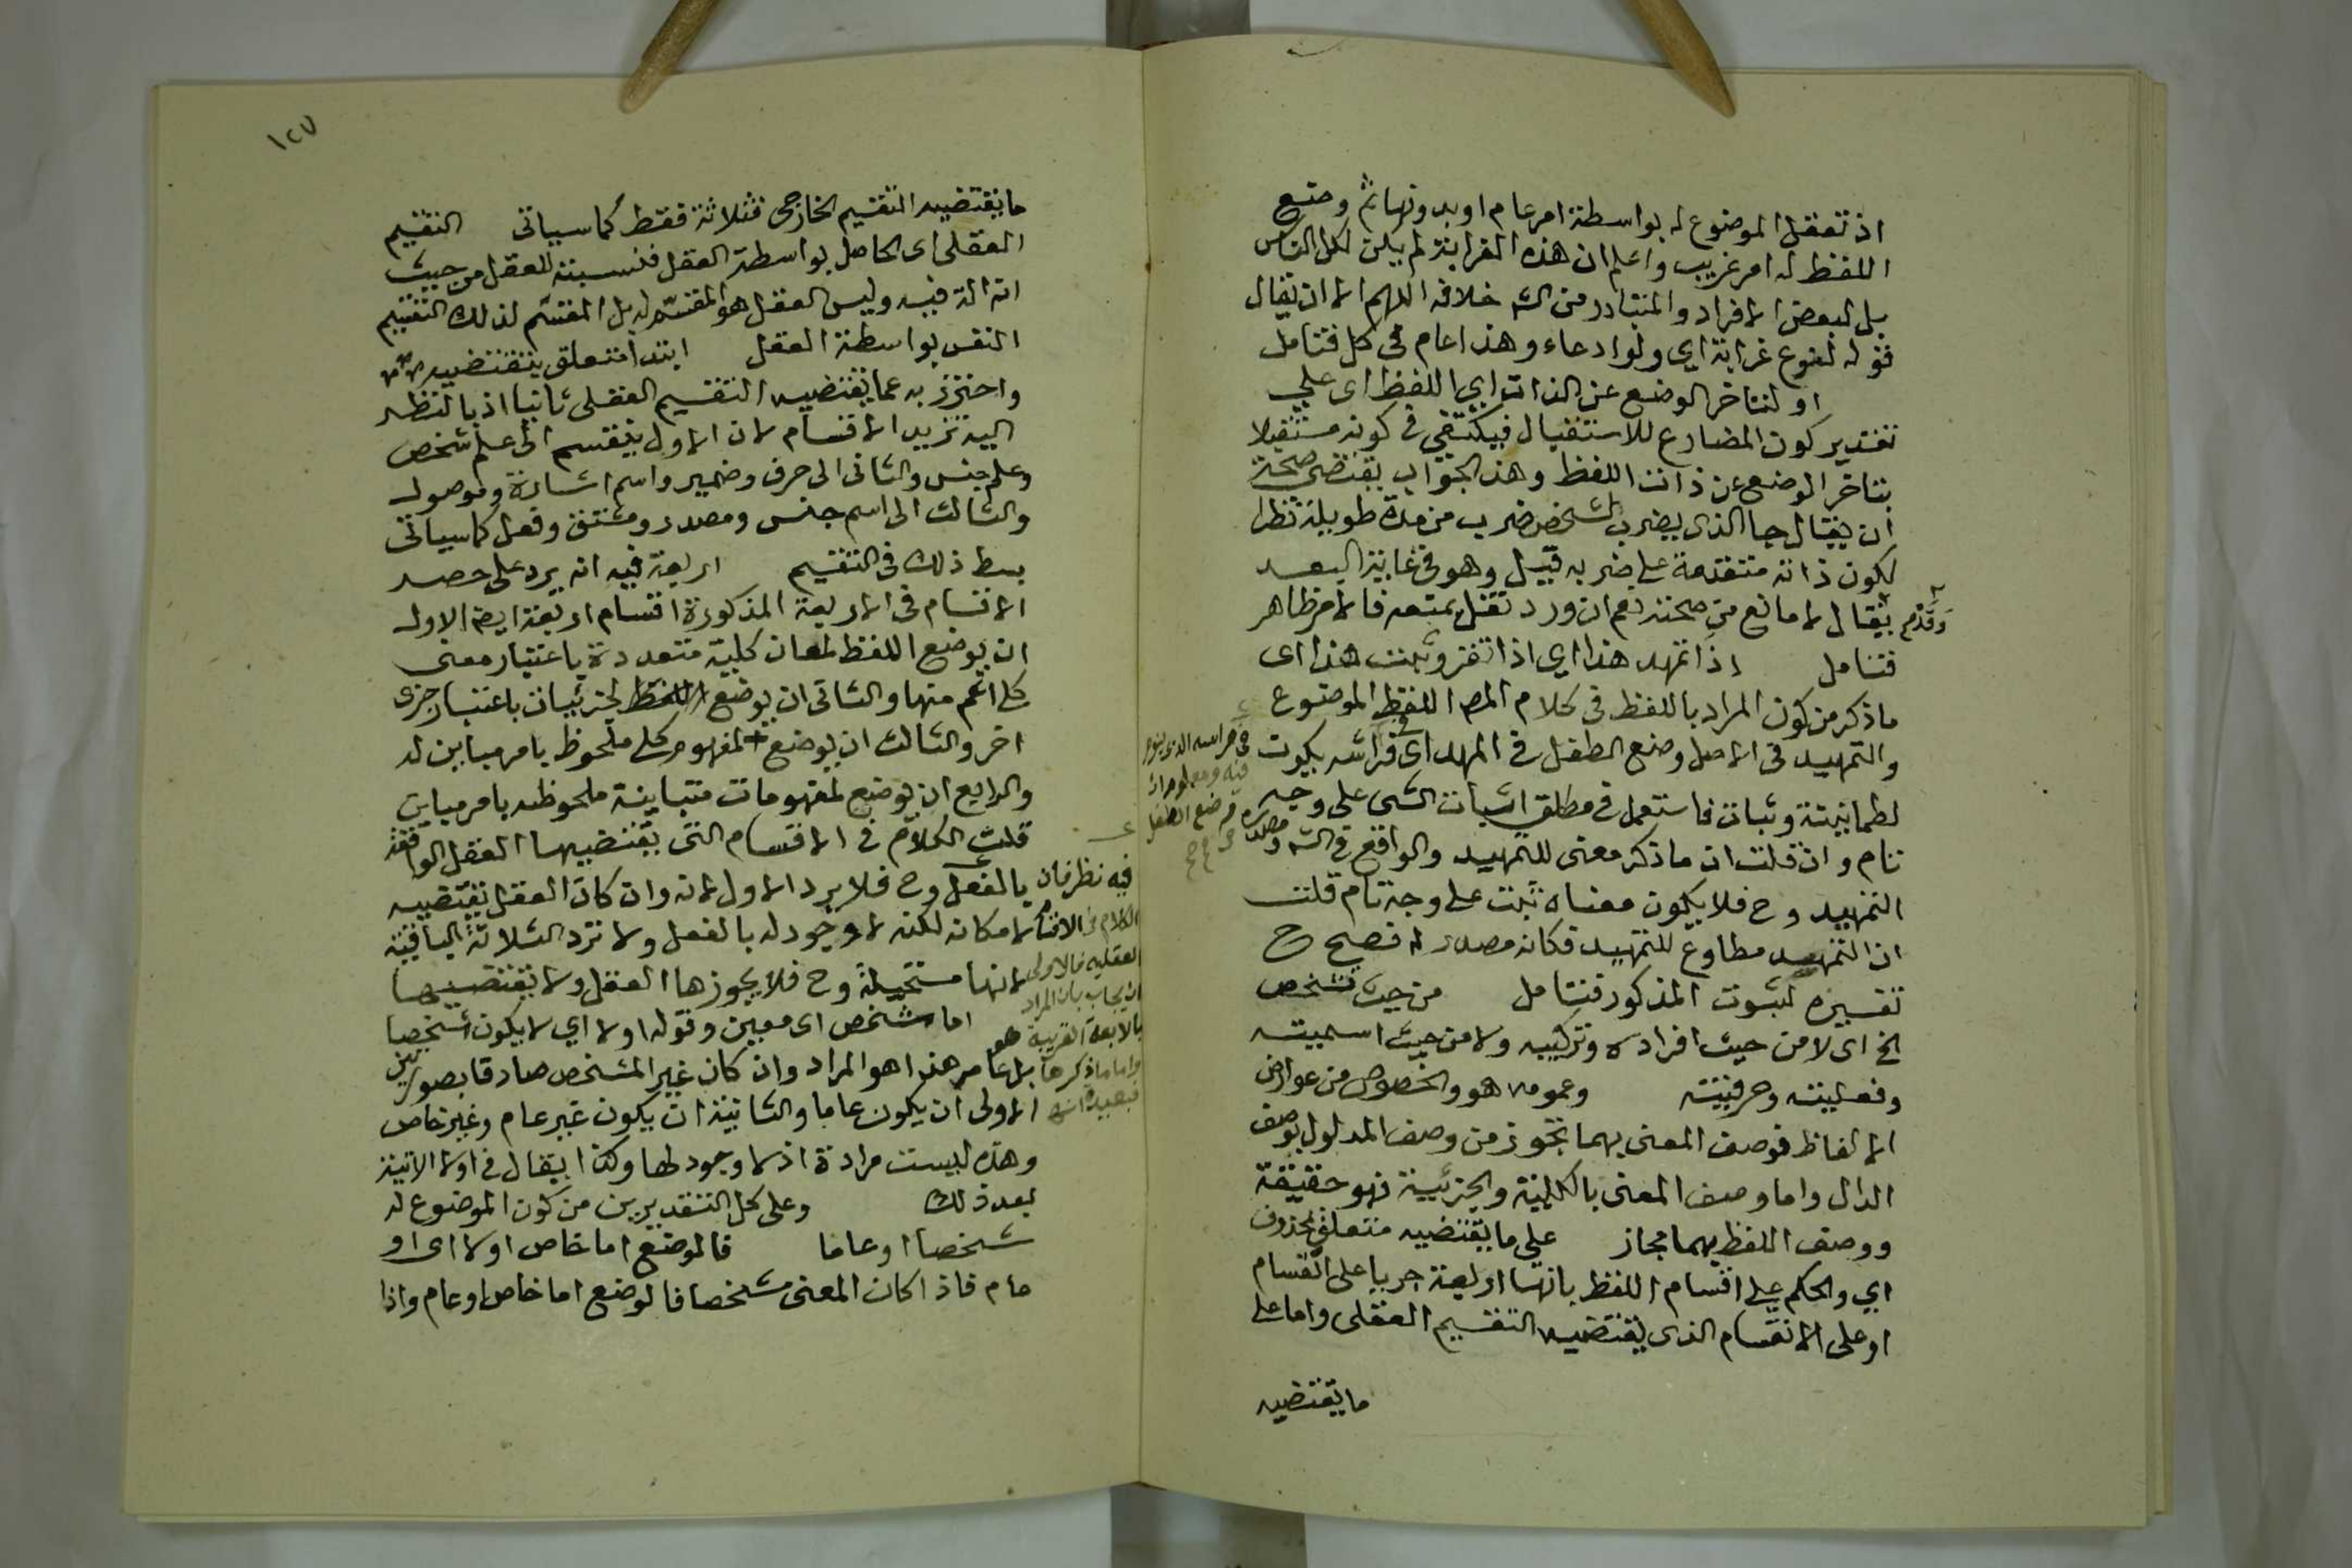 اذ تعقل الموضوع له بواسطة امر عام او بدونها ثم وضع
اللفظ له امر غريب واعلم ان هذه الغرابة لم يكن لكل الناس
بل لبعض الافراد والمتبادر من الش خلافه اللهم الا ان يقال
قوله لنوع غرابة اي ولو ادعاء وهذا عام في كل فتامل
او لتاخر الوضع عن الذات اي اللفظ اي على
تقدير كون المضارع للاستقبال فيكتفي في كونه مستقبلا
بتاخر الوضع عن ذات اللفظ وهذا الجواب يقتضي صحة
ان يقال جا الذي يضرب لشخص ضرب من مدة طويلة نظرا
لكون ذاته متقدمة على ضربه قيل وهو في غاية البعد
وقد يقال لا مانع من صحته نعم ان ورد نقل بمنعه فالامر ظاهر
فتامل اذا تمهد هذا اي اذا تقرر وثبت هذا اي
ماذكر من كون المراد باللفظ في كلام المص اللفظ الموضوع
والتمهيد في الاصل وضع الطفل في المهد اي في فراشه بكون
لطمانينة وثبات فاستعمل في مطلق اثبات الشي على وجه
تام وان قلت ان ماذكر معنى للتمهيد والواقع في الش مصدره
التمهيد وح فلا يكون معناه ثبت على وجه تام قلت
ان التمهد مطاوع للتمهيد فكانه مصدر له فصح ح
تفسيره لثبوت المذكور فتامل من حيث تشخص
الخ اي لا من حيث افراده وتركيبه ولا من حيث اسميته
وفعليته وحرفيته وعمومه هو والخصوص من عوارض
الالفاظ فوصف المعنى بهما تجوز من وصف المدلول بوصف
الدال واما وصف المعنى بالكلية والجزئية فهو حقيقة
ووصف اللفظ بهما مجاز على ما يقتضيه متعلق بمحذوف
اي والحكم على اقسام اللفظ بانها اربعة جريا على القسام
او على الانقسام الذي يقتضيه التقسيم العقلي واما على
ما يقتضيه
١٢٧
ما يقتضيه التقسيم الخارجي فثلاثة فقط كما سياتي التقسيم
العقلي اي الحاصل بواسطة العقل فنسبته للعقل من حيث
انه الة فيه وليس العقل هو المقسم له بل المقسم لذلك التقسيم
النفس بواسطة العقل ابتدا متعلق بيقتضيه
واحترز به عما يقتضيه التقسيم العقلي ثانيا اذ بالنظر
اليه تزيد الاقسام لان الاول ينقسم الى علم شخص
وعلم جنس والثاني الى حرف وضمير واسم اشارة وموصول
والثالث الى اسم جنس ومصدر ومشتق وفعل كما سياتي
بسط ذلك في التقسيم اربعة فيه انه يرد على حصر
الاقسام في الاربعة المذكورة اقسام اربعة ايضا الاول
ان يوضع اللفظ لمعان كلية متعددة باعتبار معنى
كلي اعم منها والثاني ان يوضع اللفظ لجزئيات باعتبار جزي
اخر والثالث ان يوضع لمفهوم كلي ملحوظ بامر مباين له
والرابع ان يوضع لمفهومات متباينة ملحوظه بامر مباين
قلت الكلام في الاقسام التي يقتضيها العقل الواقعة
بالفعل وح فلا يرد الاول لانه وان كان العقل يقتضيه
لامكانه لكنه لا وجود له بالفعل ولا ترد الثلاثة الباقية
لانها مستحيلة وح فلا يجوزها العقل ولا يقتضيها
اما شخص اي معين وقوله اولا اي لا يكون شخصا
بل عام هذا هو المراد وان كان غير المشخص صادقا بصورتين
الاولى ان يكون عاما والثانية ان يكون غير عام وغير خاص
وهذه ليست مرادة اذ لا وجود لها وكذا يقال في اولا الاتية
بعد ذلك وعلى كل التقديرين من كون الموضوع له
شخصا او عاما فالوضع اما خاص اولا اي او
عام فاذا كان المعنى مشخصا فالوضع اما خاص او عام واذا
فيه نظر فان
الكلام في الاقسام
العقليه فالاولى
ان يجاب بان المراد
بالاربعة القريبة
واما ماذكر هنا
فبعيدة